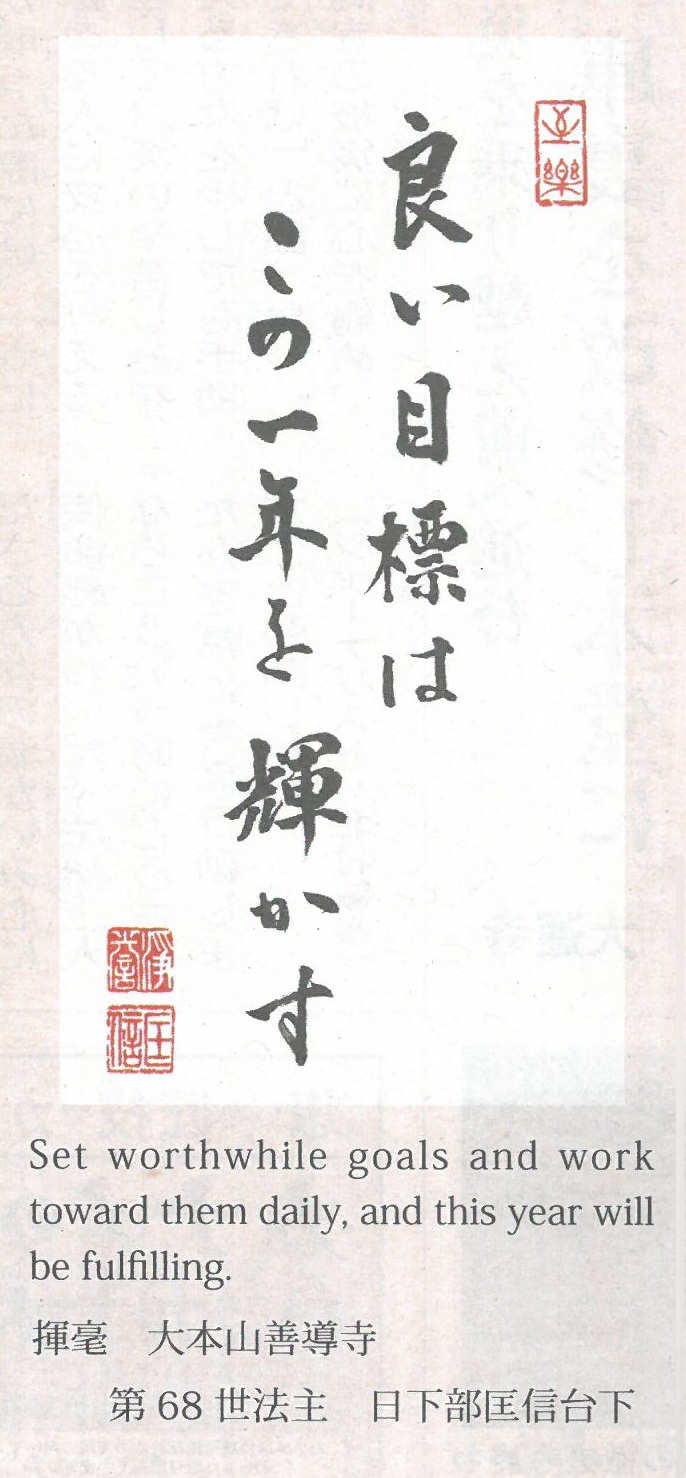 至樂
良い目標は
この一年を輝かす
淨臺
匡信
Set worthwhile goals and work
toward them daily, and this year will
be fulfilling.
揮毫　大本山善導寺
第68世法主　日下部匡信台下